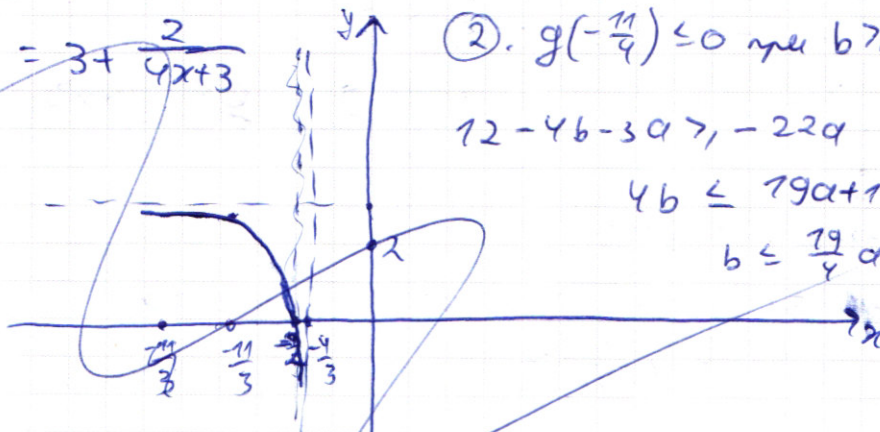 = 3 + 2/(4x+3)
y
②. g(-11/4) ≤ 0 при b ≥
12 - 4b - 3a ≥ -22a
4b ≤ 19a+1
b ≤ 19/4 a
2
-11/3 -4/3
x